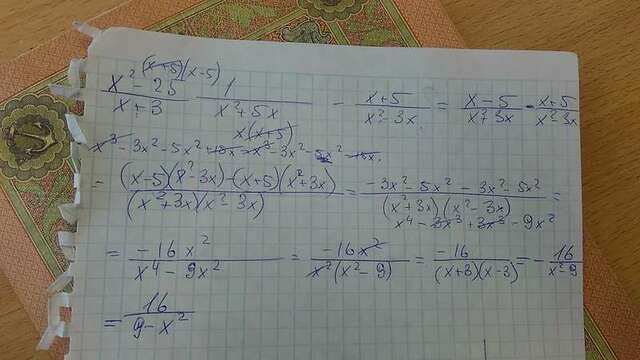 (x+5)(x-5)
x² - 25 / x+3 · 1 / x²+5x - x+5 / x²-3x = x-5 / x²+3x - x+5 / x²-3x
x(x+5)
x³ - 3x² - 5x² + 15x - x³ - 3x² - 5x² - 15x
= (x-5)(x²-3x)-(x+5)(x²+3x) / (x²+3x)(x²-3x) = -3x²-5x²-3x²-5x² / (x²+3x)(x²-3x) =
x⁴ - 3x³ + 3x³ - 9x²
= -16x² / x⁴-9x² = -16x² / x²(x²-9) = -16 / (x+3)(x-3) = - 16 / x²-9
= 16 / 9-x²